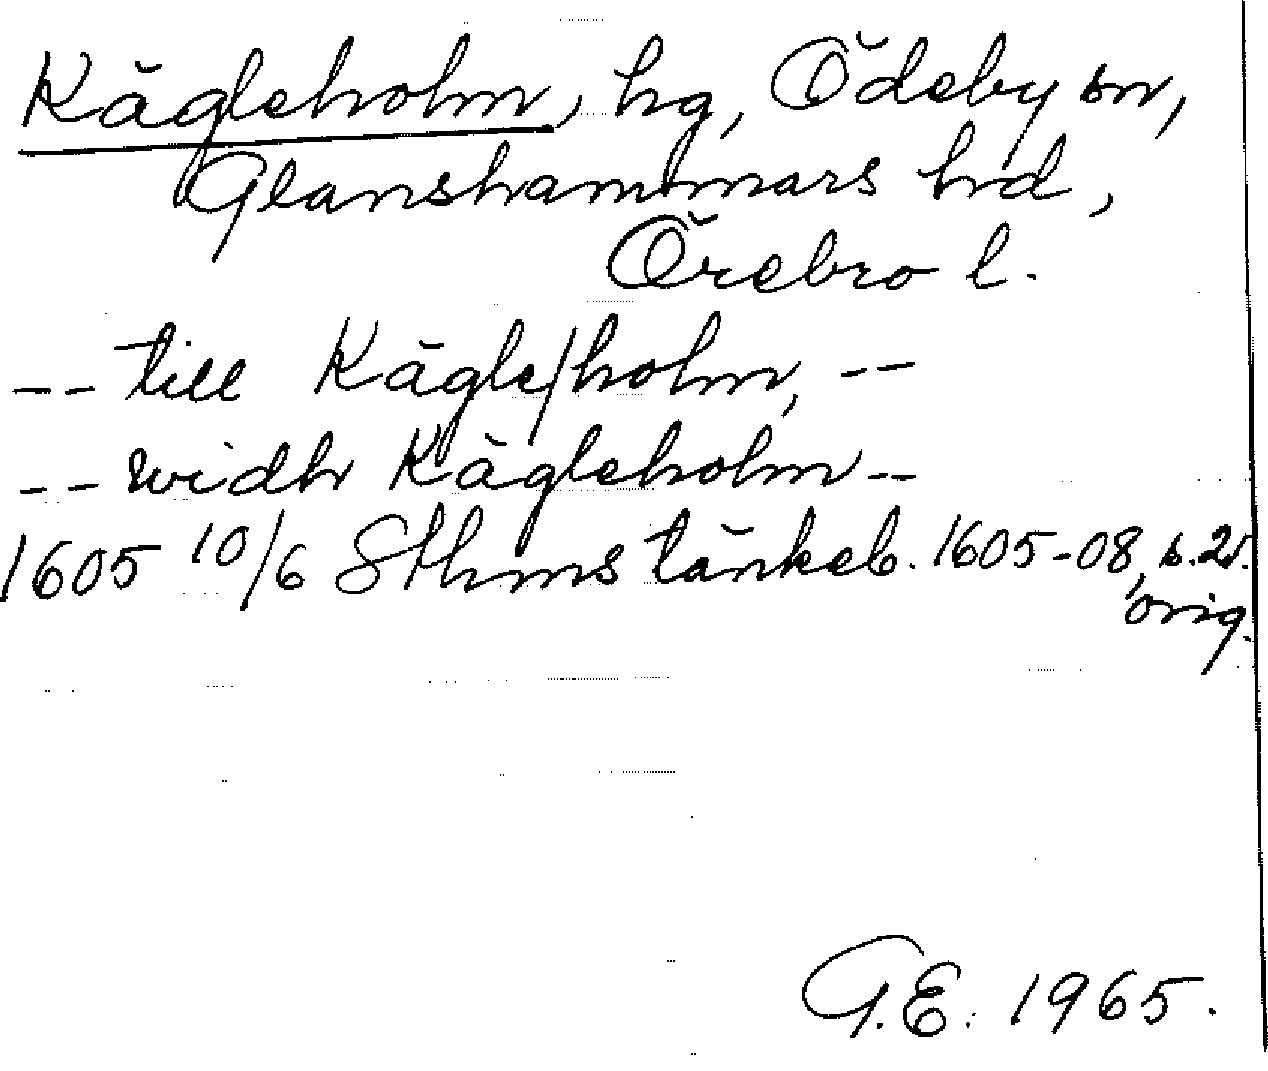 Kägleholm, hg, Ödeby sn,
Glanshammars hd,
Örebro l.
-- till Kägle/holm, --
-- widh Kägleholm --
1605 10/6 Sthms tänkeb. 1605-08, s. 2v.
orig.
G.E. 1965.